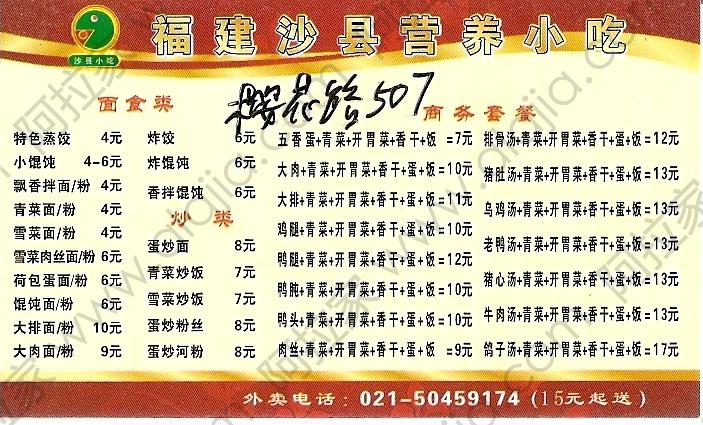 福建沙县营养小吃
沙县小吃
樱花路507
面食类
特色蒸饺 4元
小馄饨 4-6元
飘香拌面/粉 4元
青菜面/粉 4元
雪菜面/粉 4元
雪菜肉丝面/粉 6元
荷包蛋面/粉 6元
馄饨面/粉 6元
大排面/粉 10元
大肉面/粉 9元
炸饺 6元
炸馄饨 6元
香拌馄饨 6元
炒 类
蛋炒面 8元
青菜炒饭 7元
雪菜炒饭 7元
蛋炒粉丝 8元
蛋炒河粉 8元
商务套餐
五香蛋+青菜+开胃菜+香干+饭 =7元
大肉+青菜+开胃菜+香干+蛋+饭 =10元
大排+青菜+开胃菜+香干+蛋+饭 =11元
鸡腿+青菜+开胃菜+香干+蛋+饭 =10元
鸭腿+青菜+开胃菜+香干+蛋+饭 =12元
鸭肫+青菜+开胃菜+香干+蛋+饭 =10元
鸭头+青菜+开胃菜+香干+蛋+饭 =10元
肉丝+青菜+开胃菜+香干+蛋+饭 =9元
排骨汤+青菜+开胃菜+香干+蛋+饭=12元
猪肚汤+青菜+开胃菜+香干+蛋+饭=13元
乌鸡汤+青菜+开胃菜+香干+蛋+饭=13元
老鸭汤+青菜+开胃菜+香干+蛋+饭=13元
猪心汤+青菜+开胃菜+香干+蛋+饭=13元
牛肉汤+青菜+开胃菜+香干+蛋+饭=13元
鸽子汤+青菜+开胃菜+香干+蛋+饭=17元
外卖电话：021-50459174（15元起送）
阿拉家 www.alajia.com